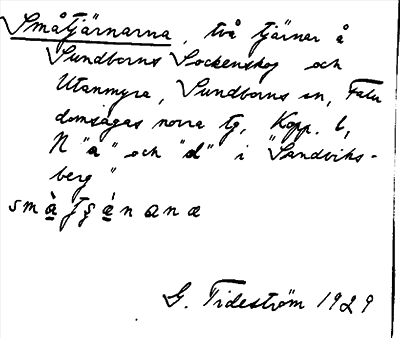 Småtjärnarna, två tjärnar å
Sundborns Sockenskog och
Utanmyra, Sundborns sn, Falu
domsagas norra tg, Kopp. l,
N "a" och "d" i "Sandviks-
berg"
G. Tideström 1929